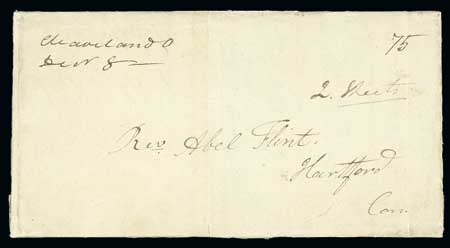 Cleaveland O
75
2. Sheets.
Rev. Abel Flint.
Hartford
Con.